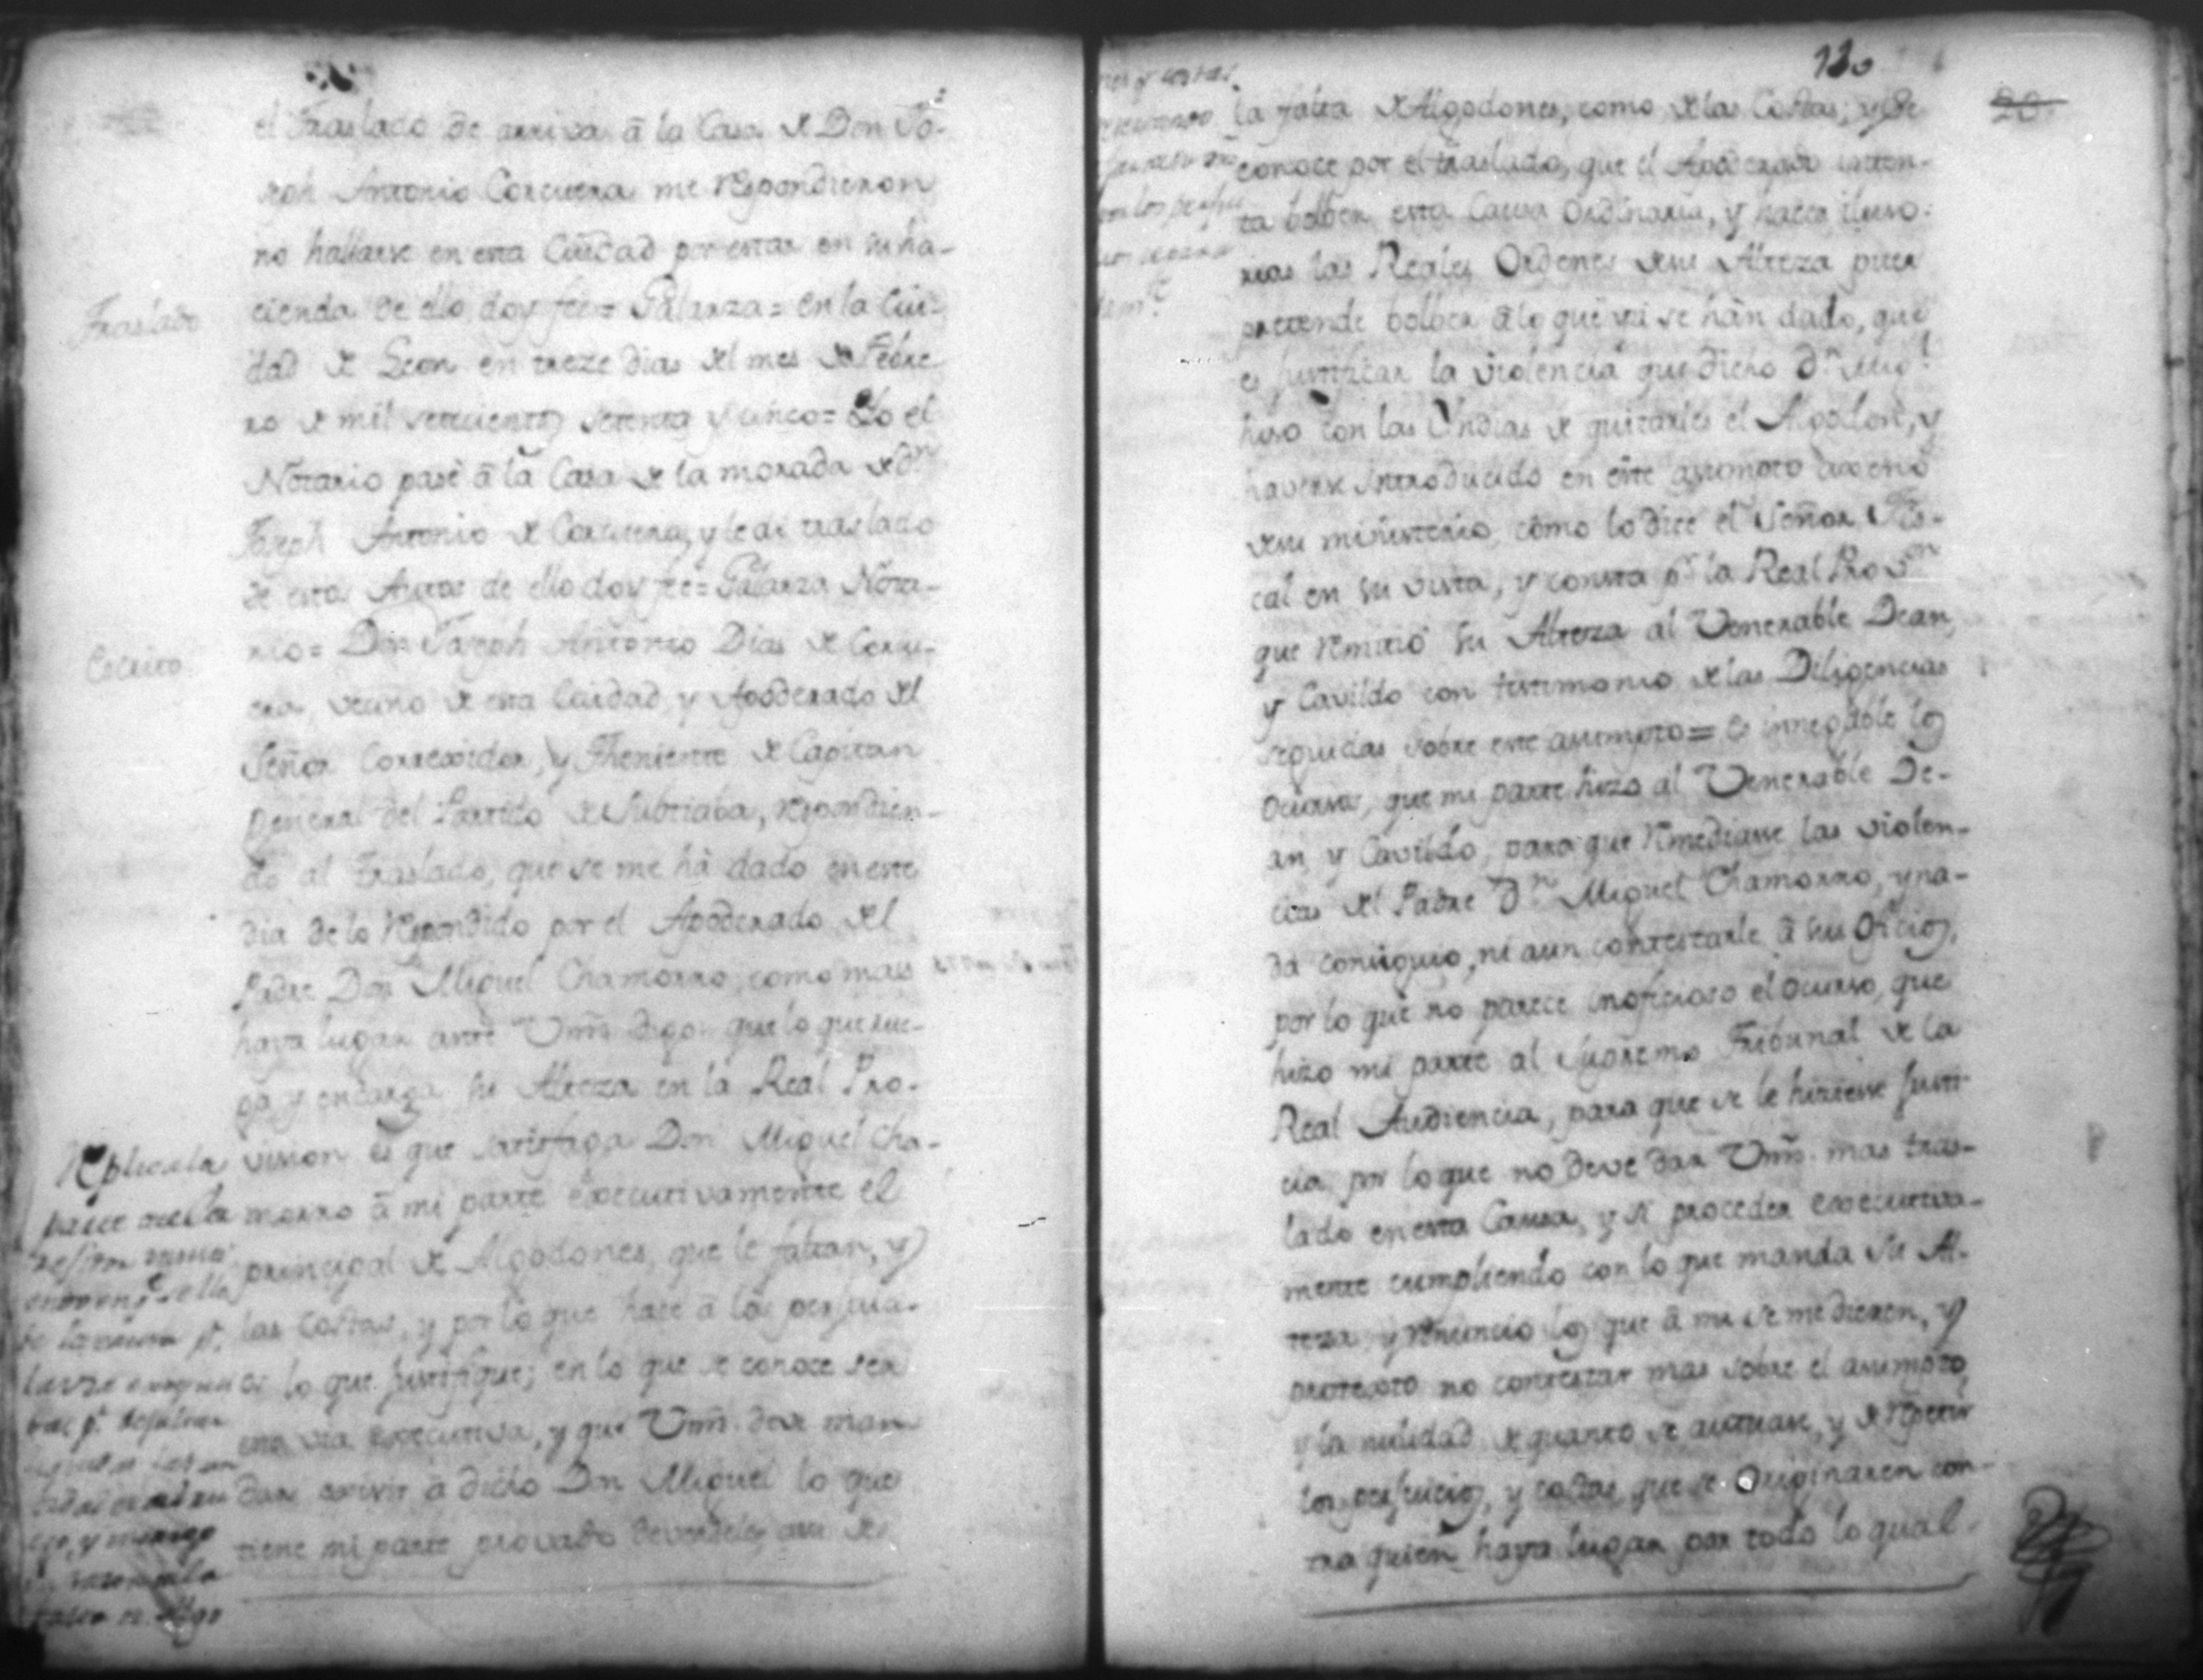 el Traslado de arriva â la Casa de Don Jo-
seph Antonio Corcuera me respondieron
no hallarse en esta Ciudad por estar en su ha-
Traslado
cienda de ello doy fee = Galarza = en la Ciu-
dad de Leon en treze dias del mes de Febre
ro de mil setecientos setenta y cinco = Yo el
Notario pasè â la Casa de la morada de Dn
Joseph Antonio de Corcuera, y le di traslado
de estos Autos de ello doy fee = Galarza Nota-
Escrito
rio = Don Joseph Antonio Dias de Corcu-
era, vecino de esta Ciudad, y Apoderado del
Señor Corregidor, y Theniente de Capitan
General del Partido de Subtiaba, respondien-
do al traslado, que se me hà dado en este
dia de lo respondido por el Apoderado del
Padre Don Miguel Chamorro, como mas
haya lugar ante Vm̃s digo: que lo que rue-
ga y encarga su Alteza en la Real Pro-
vision es que satisfaga Don Miguel Cha-
morro â mi parte executivamente el
principal de Algodones, que le faltan, y
las costas, y por lo que hace â los perjui-
cios lo que justifique; en lo que se conoce ser
esta via executiva, y que Vm̃s deve man
dar exivir â dicho Don Miguel lo que
tiene mi parte provado deversele, assi de
Replica la
parte de la
y
130
20
la falta de Algodones, como de las Costas; y se
conoce por el traslado, que el Apoderado inten-
ta bolber esta Causa Ordinaria, y hacer iluso-
rias las Reales Ordenes de su Alteza pues
pretende bolber â lo que ya se hàn dado, que
es justificar la violencia que dicho Dn Migl
hiso con las Yndias de quitarles el Algodon, y
haverse introducido en este assumpto ageno
de su ministerio, como lo dice el Señor Fis-
cal en su vista, y consta pr la Real Provon
que remitiò su Alteza al Venerable Dean,
y Cavildo con testimonio de las Diligencias
seguidas sobre este assumpto = es innegable los
ocursos, que mi parte hizo al Venerable De-
an, y Cavildo, para que remediasse las violen-
cias del Padre Dn Miguel Chamorro, y na-
da consiguio, ni aun contestarle â sus Oficios,
por lo que no parece inoficioso el ocurso, que
hizo mi parte al Supremo Tribunal de la
Real Audiencia, para que se le hiziesse justi-
cia, por lo que no deve dar Vm̃s mas tras-
lado en esta Causa, y si proceder executiva-
mente cumpliendo con lo que manda Su Al-
teza, y renuncio los que â mi se me dieren, y
protesto no contestar mas sobre el assumpto,
y la nulidad de quanto se actuase, y de repetir
los perjuicios, y costas que se Originaren con-
tra quien haya lugar por todo lo qual